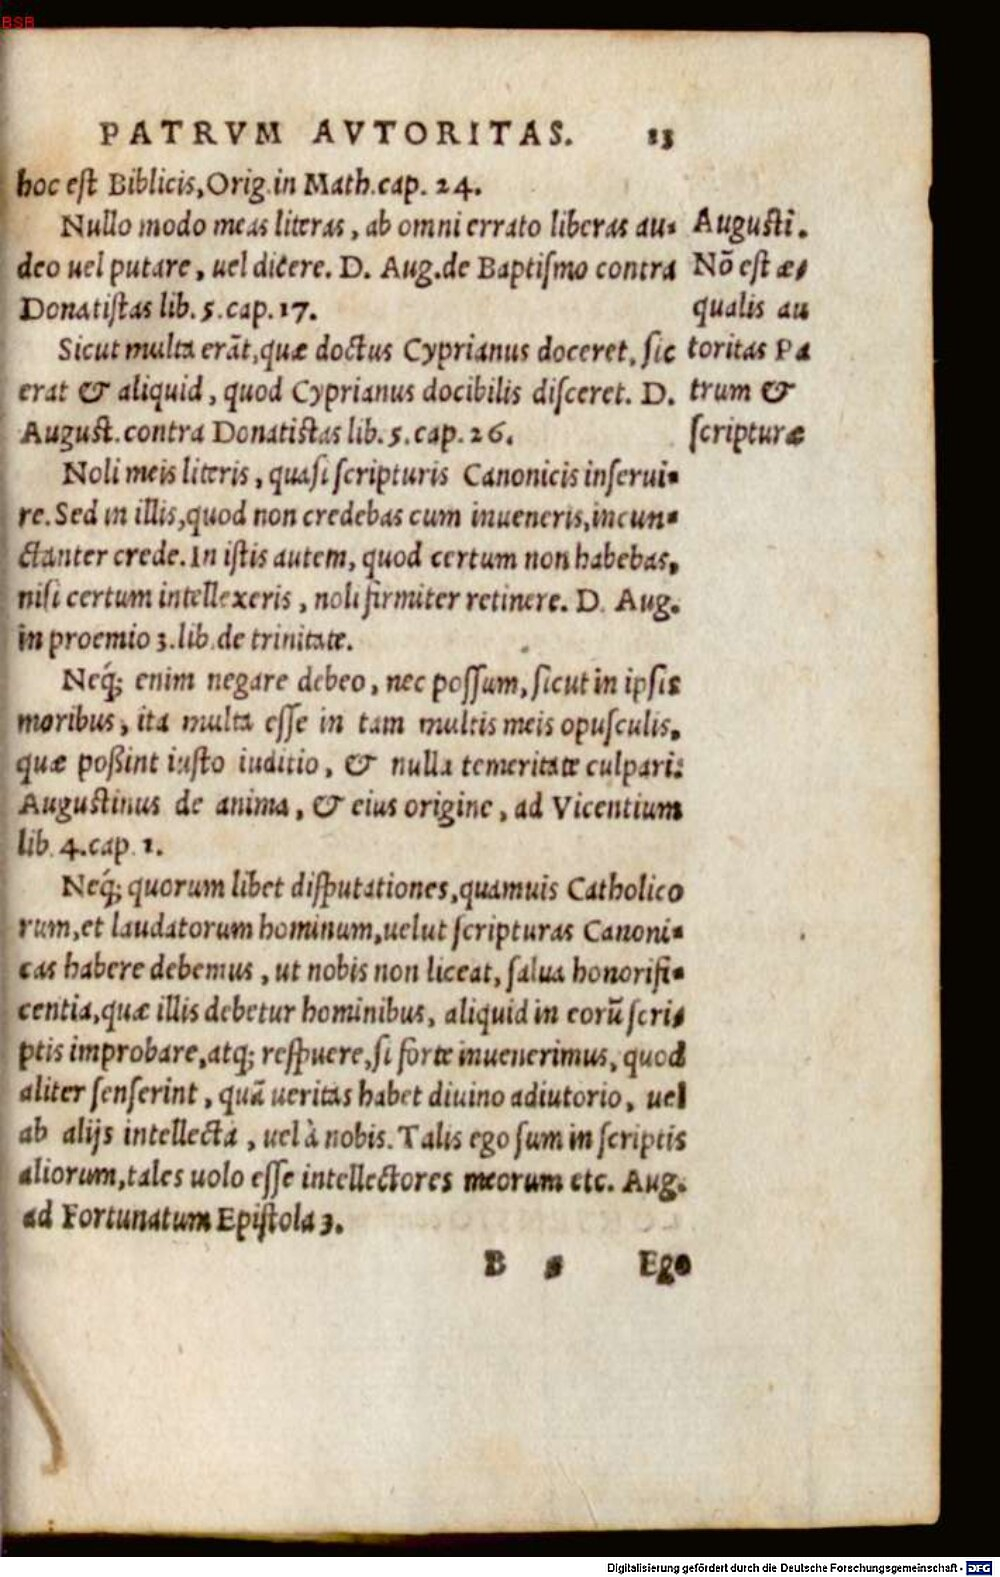 BSB
PATRVM AVTORITAS. 13
hoc est Biblicis, Orig. in Math. cap. 24.
Nullo modo meas literas, ab omni errato liberas au-
deo uel putare, uel dicere. D. Aug. de Baptismo contra
Donatistas lib. 5. cap. 17.
Sicut multa erãt, quæ doctus Cyprianus doceret, sic
erat & aliquid, quod Cyprianus docibilis disceret. D.
August. contra Donatistas lib. 5. cap. 26.
Augusti.
Nõ est æ-
qualis au
toritas Pa
trum &
scripturæ
Noli meis literis, quasi scripturis Canonicis inserui-
re. Sed in illis, quod non credebas cum inueneris, incun-
ctanter crede. In istis autem, quod certum non habebas,
nisi certum intellexeris, noli firmiter retinere. D. Aug.
in proemio 3. lib. de trinitate.
Neq́; enim negare debeo, nec possum, sicut in ipsis
moribus, ita multa esse in tam multis meis opusculis,
quæ poßint iusto iuditio, & nulla temeritate culpari:
Augustinus de anima, & eius origine, ad Vicentium
lib. 4. cap. 1.
Neq́; quorum libet disputationes, quamuis Catholico
rum, et laudatorum hominum, uelut scripturas Canoni-
cas habere debemus, ut nobis non liceat, salua honorifi-
centia, quæ illis debetur hominibus, aliquid in eorũ scri-
ptis improbare, atq; respuere, si forte inuenerimus, quod
aliter senserint, quã ueritas habet diuino adiutorio, uel
ab alijs intellecta, uel à nobis. Talis ego sum in scriptis
aliorum, tales uolo esse intellectores meorum etc. Aug.
ad Fortunatum Epistola 3.
B Ego
Digitalisierung gefördert durch die Deutsche Forschungsgemeinschaft - DFG